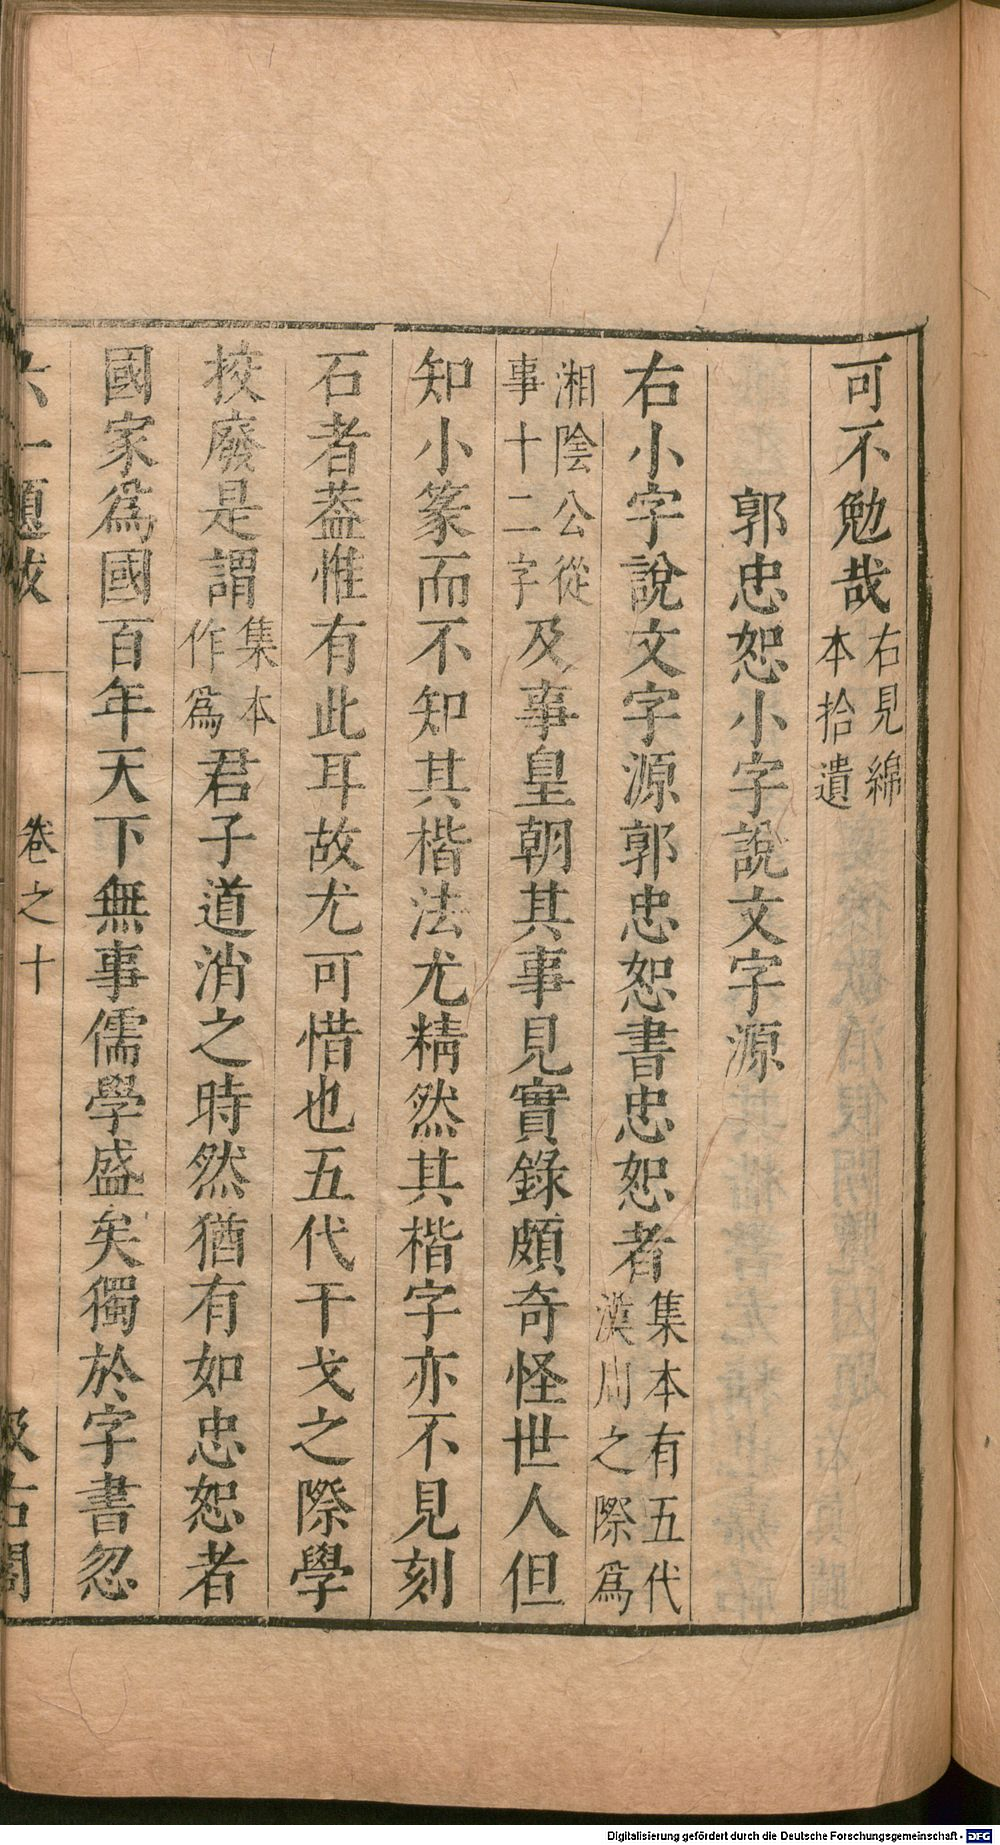 可不勉哉右見綿本拾遺
郭忠恕小字說文字源
右小字說文字源郭忠恕書忠恕者集本有五代漢周之際爲
湘陰公從事十二字及事皇朝其事見實錄頗奇怪世人但
知小篆而不知其楷法尤精然其楷字亦不見刻
石者葢惟有此耳故尤可惜也五代干戈之際學
挍廢是謂集本作爲君子道消之時然猶有如忠恕者
國家爲國百年天下無事儒學盛矣獨於字書忽
六一題跋 卷之十 汲古閣
Digitalisierung gefördert durch die Deutsche Forschungsgemeinschaft - DFG